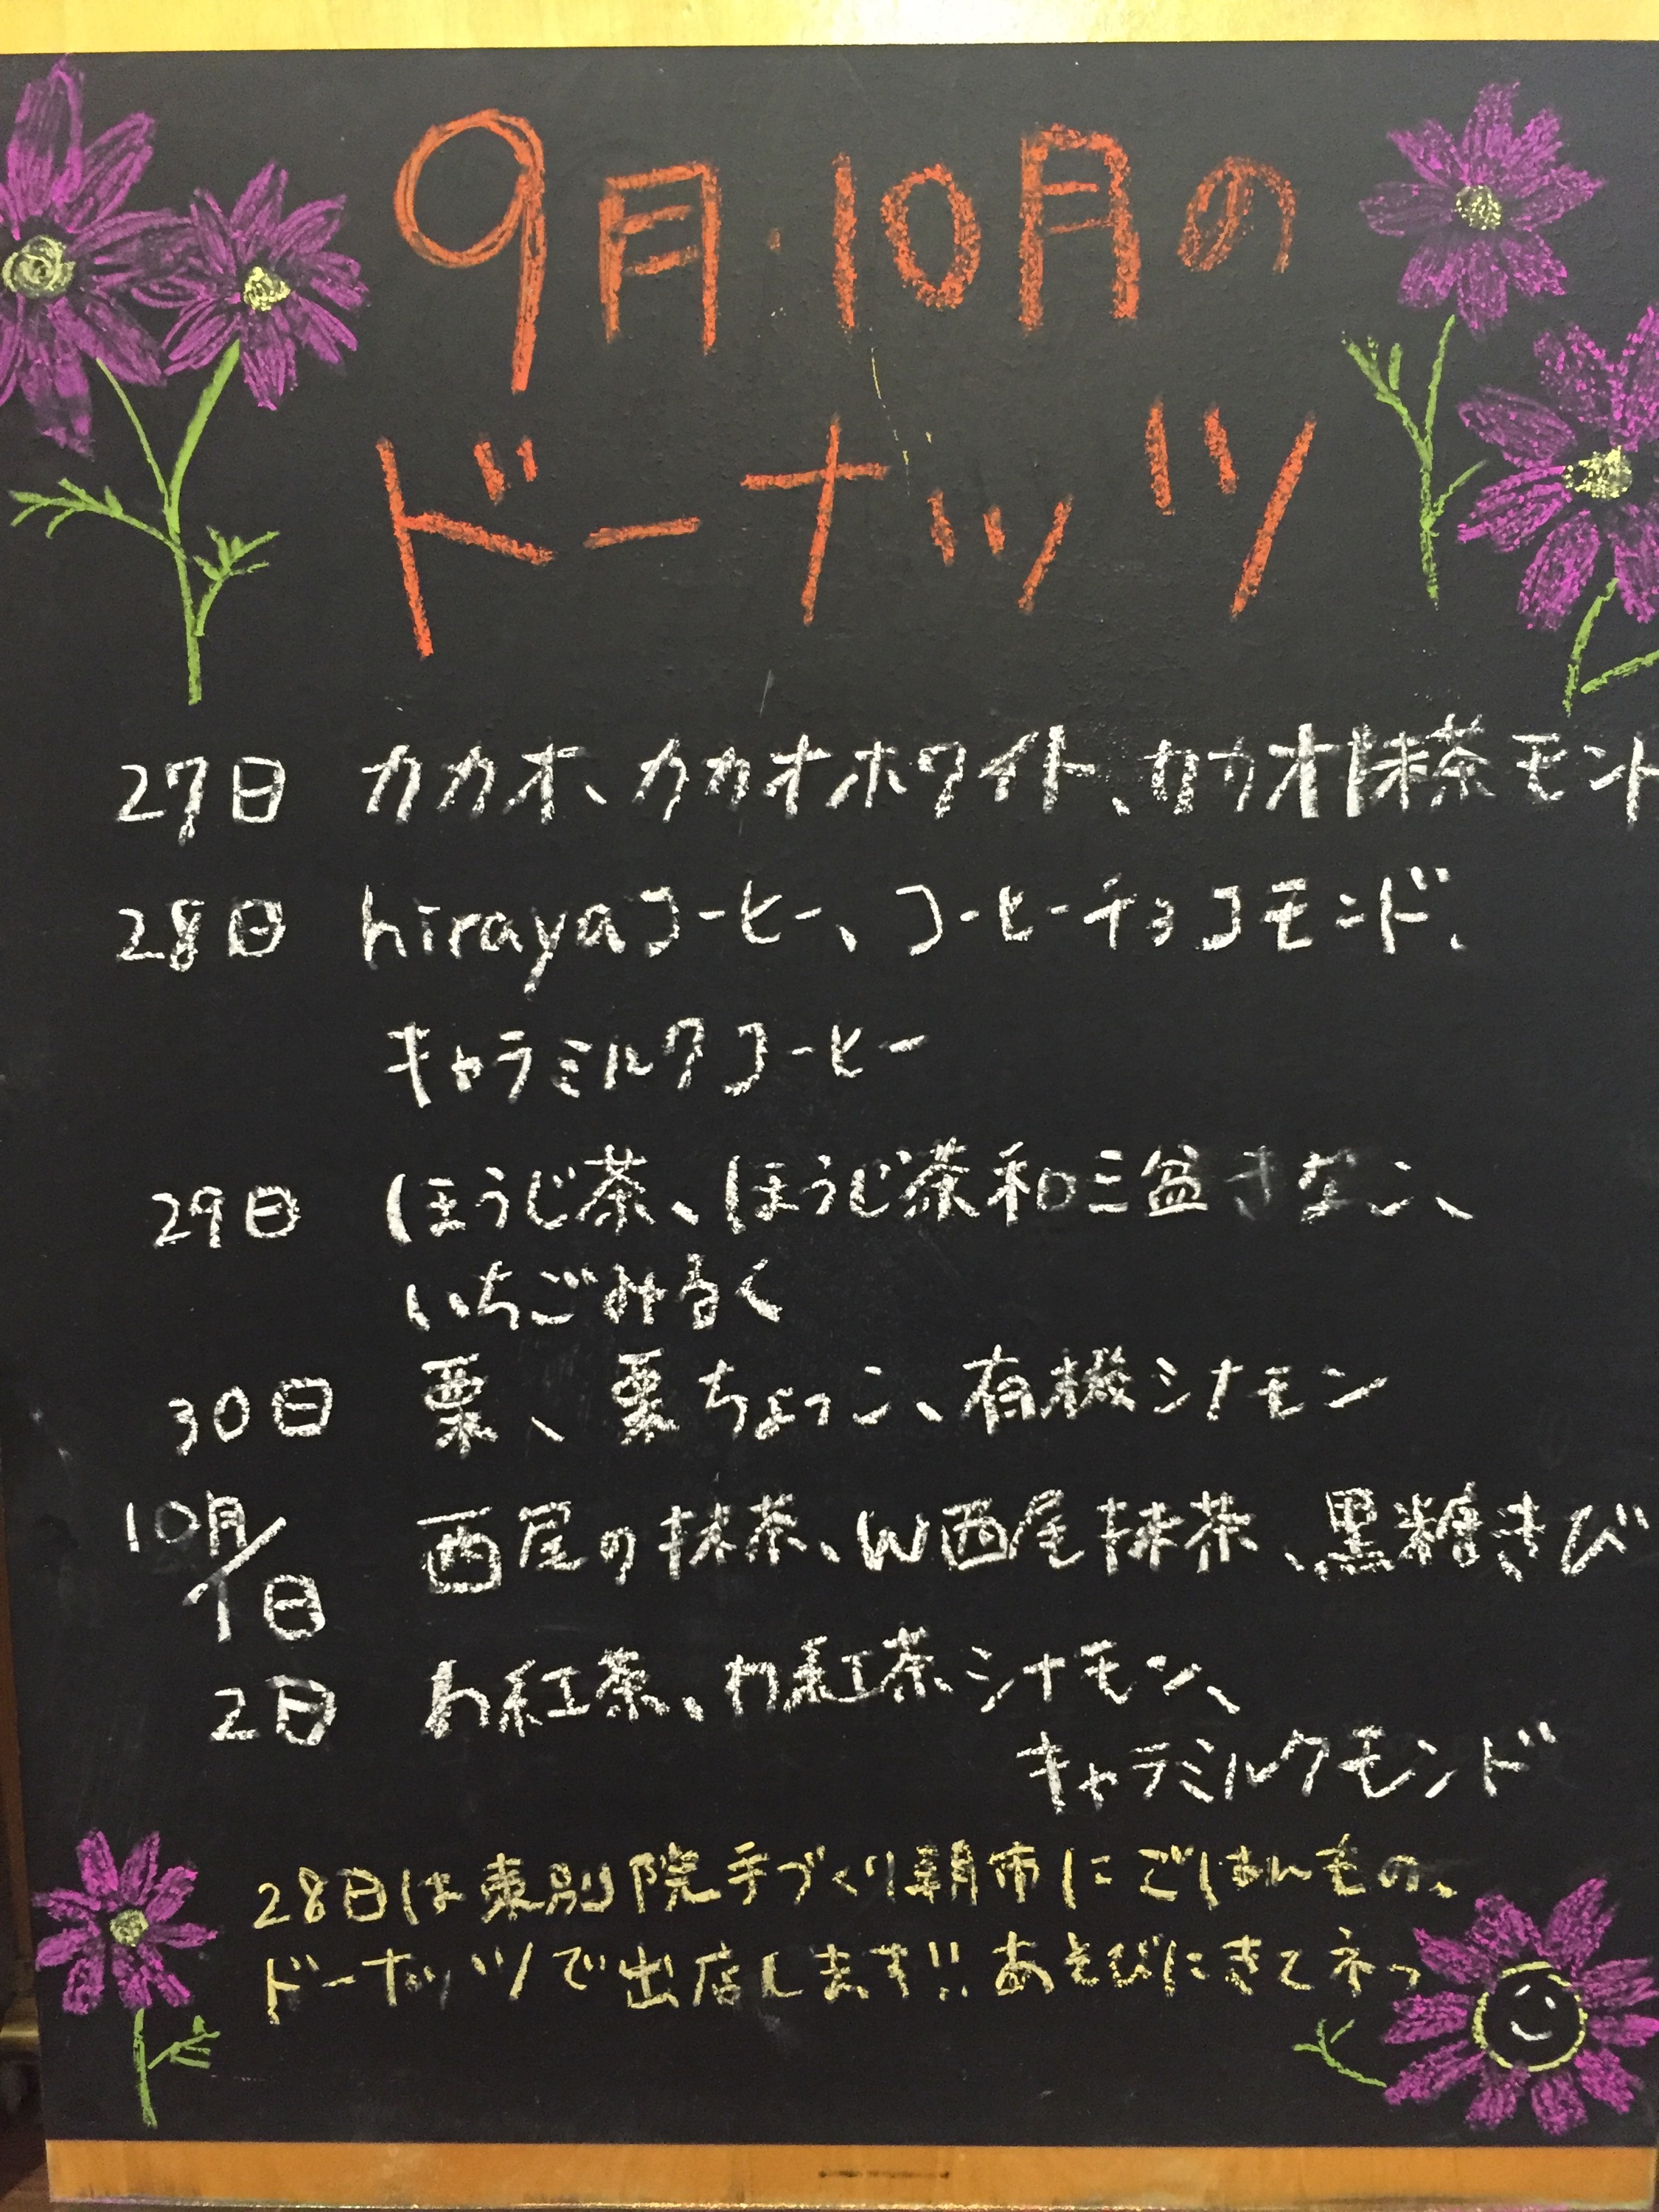 9月・10月の
ドーナッツ
27日 カカオ、カカオホワイト、カカオ抹茶モント
28日 hirayaコーヒー、コーヒーチョコモンド、
キャラミルクコーヒー
29日 ほうじ茶、ほうじ茶和三盆きなこ、
いちごみるく
30日 栗、栗ちょっこ、有機シナモン
10月/1日 西尾の抹茶、W西尾抹茶、黒糖きび
2日 わ紅茶、わ紅茶シナモン、
キャラミルクモンド
28日は東別院手づくり朝市にごはんもの、
ドーナッツで出店します!! あそびにきてネっ